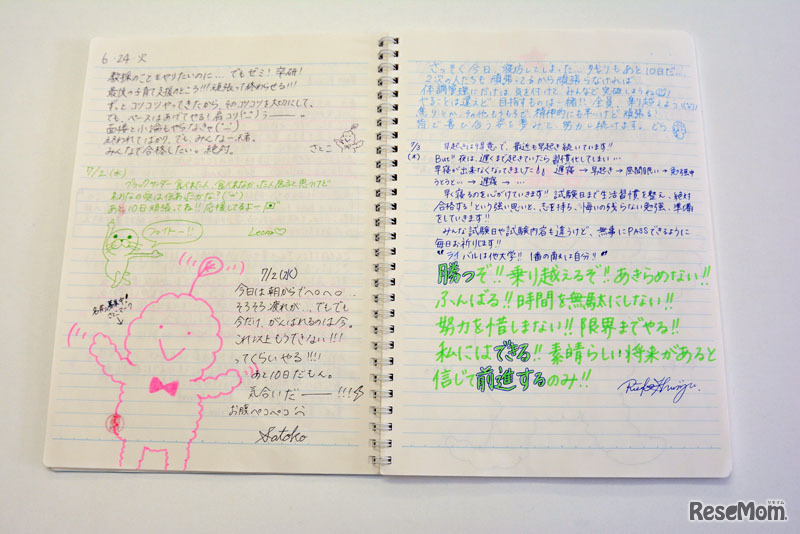 6・24 火
教採のことをやりたいのに… でもゼミ!発研!
最後の子育て支援のところ!!!頑張って終わらせる!!!
ずっとコツコツやってきたから、そのコツコツを大切にして、
でも、ペースはあげてやる!
面接と小論もやらなきゃ(
終われてばかり、でも、みんな一緒。
みんなで合格したい。絶対。
さとこ
7/2(水)
ブラックサンダー食べれた人、食べれなかった人居ると思うけど
あと10日頑張ってね!!応援してるよー
ファイトー!!
Leona♡
7/2(水)
今日は朝からで〜。〜。…
そろそろ疲れが…でもでも
今だけ、がんばれるのは今。
これ以上もうできない!!!
ってくらいやる!!!
あと10日だもん。
気合いだ―――!!!
お腹ペコペコ
Satoko
さっそく今日、寝坊してしまった…残りもあと10日だ…
2次の人たちも頑張ってるから頑張らなければ
体調管理にだけは気を付けて、みんなで突破しようね
やることは違えど、目指すものは一緒!!全員で乗り越えよう!!
皆で喜び合う姿を夢みて、努力し続けます。
7/3
(木)
早起きは得意で、最近も早起き続いています!!
But 夜は、遅くまで起きていたら習慣化してしまい…
早寝が出来なくなってきました!! 遅寝→早起き→昼間眠い→勉強中
うとうと…→遅寝→…
早く寝るのを心がけていきます!! 試験日まで生活習慣を整え、絶対
合格する!という強い思いと、志を持ち、悔いの残らない勉強、準備
をしていきます!!
みんな試験日や試験内容も違うけど、無事にPASSできるように
毎日お祈りします!!
"ライバルは他大学!! 1番の敵は自分!!"
勝つぞ!!乗り越えるぞ!!あきらめない!!
ふんばる!!時間を無駄にしない!!
努力を惜しまない!!限界までやる!!
私にはできる!!素晴らしい将来があると
信じて前進するのみ!!
ReseMom.
リセマム